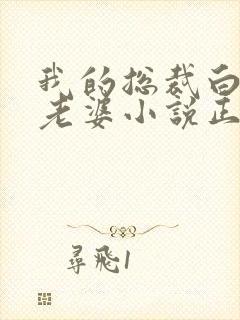 我的總裁白
老婆小說正
尋飛1